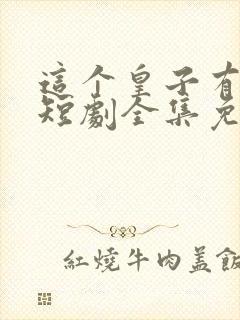 這个皇子有
短劇全集免
紅燒牛肉盖飯